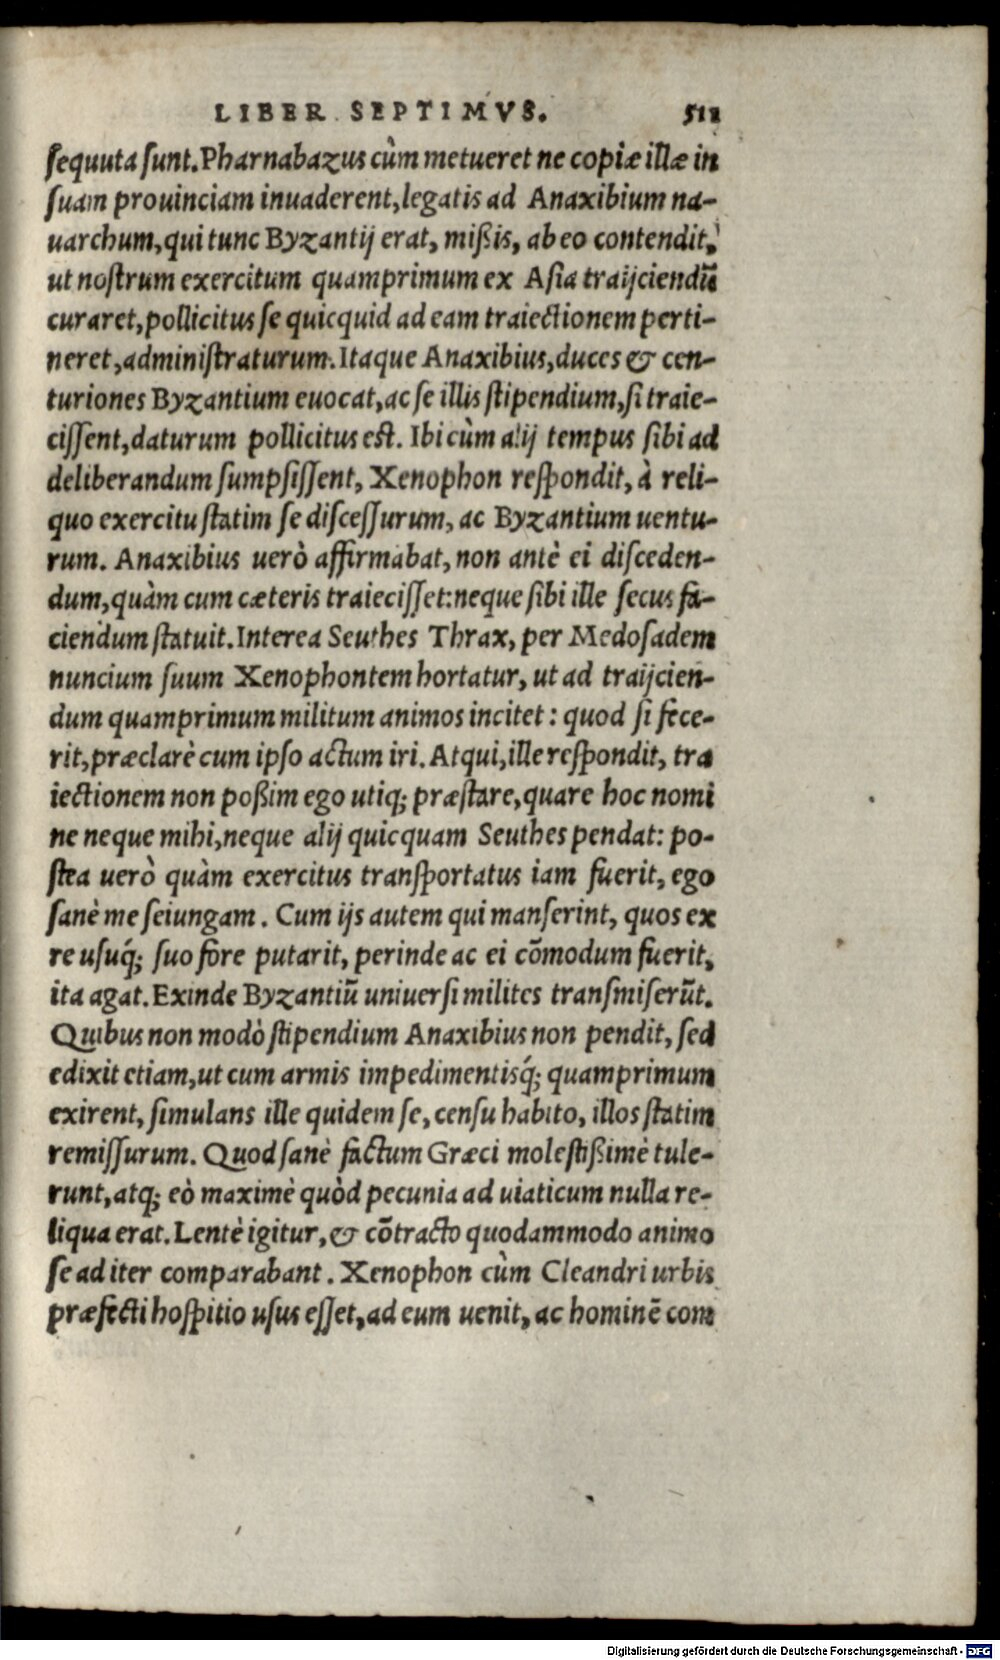 LIBER SEPTIMVS. 512
sequuta sunt. Pharnabazus cùm metueret ne copiæ illæ in
suam prouinciam inuaderent, legatis ad Anaxibium na-
uarchum, qui tunc Byzantij erat, mißis, ab eo contendit,
ut nostrum exercitum quamprimum ex Asia traijciendū
curaret, pollicitus se quicquid ad eam traiectionem perti-
neret, administraturum. Itaque Anaxibius, duces & cen-
turiones Byzantium euocat, ac se illis stipendium, si traie-
cissent, daturum pollicitus est. Ibi cùm alij tempus sibi ad
deliberandum sumpsissent, Xenophon respondit, à reli-
quo exercitu statim se discessurum, ac Byzantium uentu-
rum. Anaxibius uerò affirmabat, non antè ei disceden-
dum, quàm cum cæteris traiecisset: neque sibi ille secus fa-
ciendum statuit. Interea Seuthes Thrax, per Medosadem
nuncium suum Xenophontem hortatur, ut ad traijcien-
dum quamprimum militum animos incitet: quod si fece-
rit, præclarè cum ipso actum iri. Atqui, ille respondit, tra
iectionem non poßim ego utiq; præstare, quare hoc nomi
ne neque mihi, neque alij quicquam Seuthes pendat: po-
stea uerò quàm exercitus transportatus iam fuerit, ego
sanè me seiungam. Cum ijs autem qui manserint, quos ex
re usuq́; suo fore putarit, perinde ac ei cōmodum fuerit,
ita agat. Exinde Byzantiū uniuersi milites transmiserūt.
Quibus non modò stipendium Anaxibius non pendit, sed
edixit etiam, ut cum armis impedimentisq́; quamprimum
exirent, simulans ille quidem se, censu habito, illos statim
remissurum. Quod sanè factum Græci molestißimè tule-
runt, atq; eò maximè quòd pecunia ad uiaticum nulla re-
liqua erat. Lentè igitur, & cōtracto quodammodo animo
se ad iter comparabant. Xenophon cùm Cleandri urbis
præfecti hospitio usus esset, ad eum uenit, ac hominē com
Digitalisierung gefördert durch die Deutsche Forschungsgemeinschaft - DFG